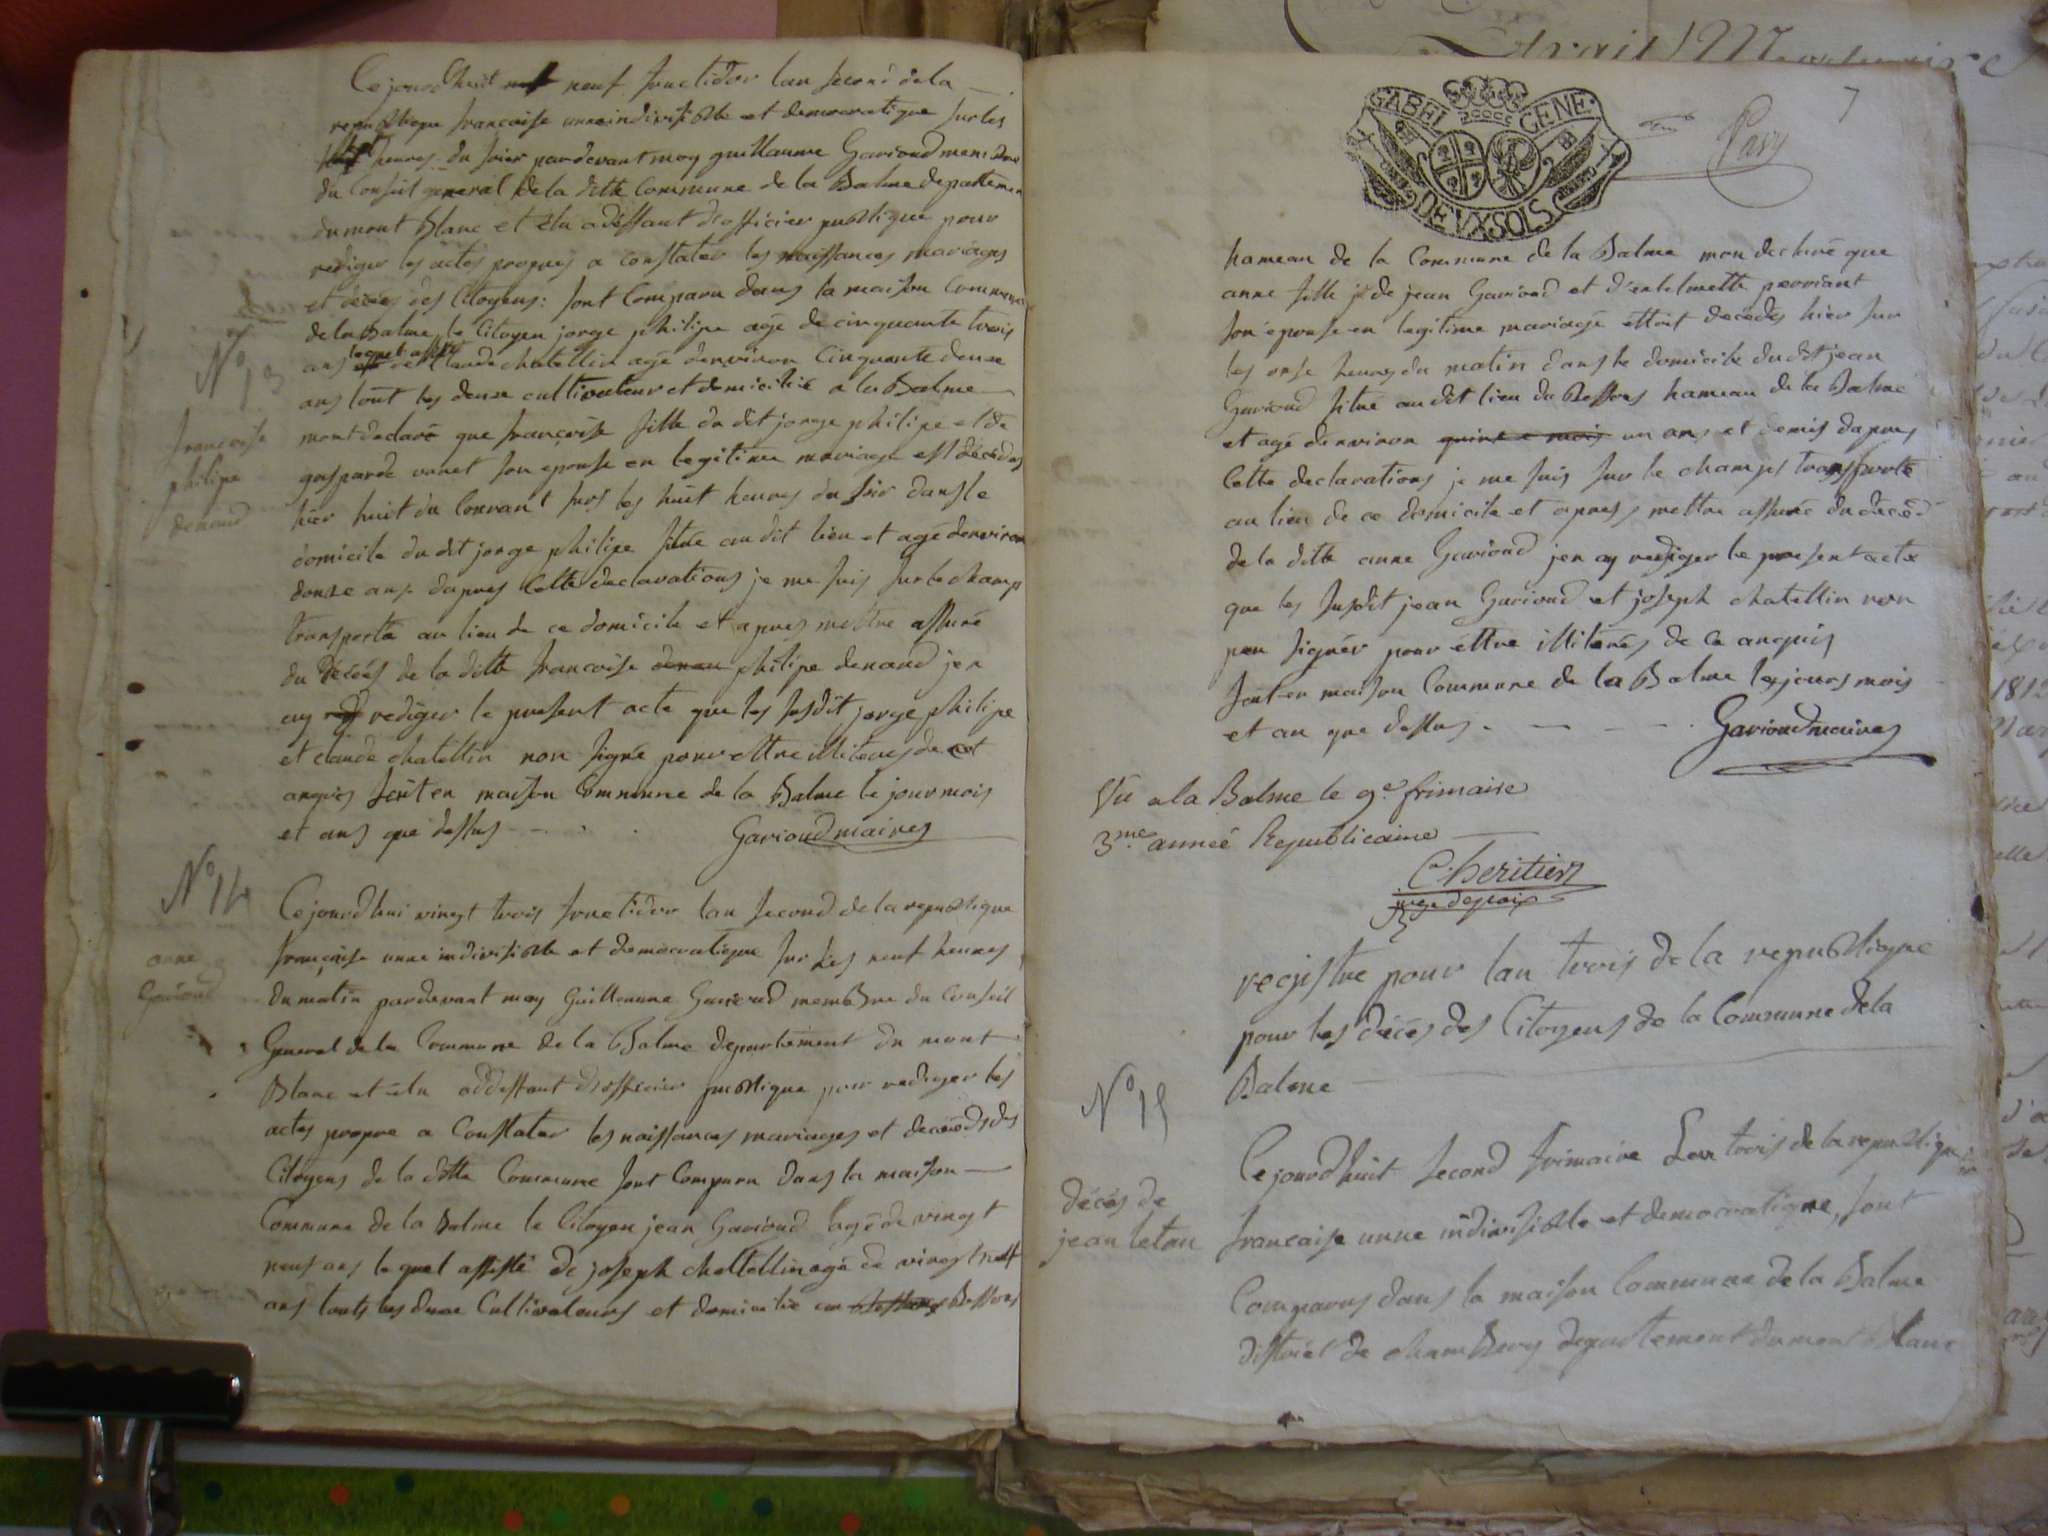 Ce jourdhuit neuf fructidor lan second de la
republique francoise unne indivisible et democratique sur les
heures du soier pardevant moy guillaume Garioud membre
du Conseil general de la ditte Commune de la Balme departemen
du mont Blanc et élu adéffaut d'officier publique pour
rediger les actes propres a constater les naissances mariages
et décés des Citoyens: sont Comparu dans la maison Commune
de la Balme le Citoyen jorge philipe agé de cinquante trois
ans lequel assisté de Claude chatellin agé denviron Cinquante deuxe
ans tout les deuxe cultivateur et domicilié a la Balme
mont declaré que françoise fille du dit jorge philipe et de
gasparde son epouse en legitime mariage est décédés
hier huit du Courant surs les huit heures du soir dans le
domicile du dit jorge philipe situé au dit lieu et agé denviron
douze ans dapres Cette declarations je me suis sur le champs
transporté au lieu de ce domicile et apres mettre assuré
du décés de la ditte francoise philipe denaud jen
ay rediger le present acte que les susdit jorge philipe
et claude chatellin non signé pour ettre illiterés de cet
anquis fait en maison Commune de la Balme le jour mois
et ans que dessus - - . . Garioud maires
N° 13
francoise
philipe
denaud
N° 14
anne
Garioud
Ce jourdhui vingt trois fructidor lan second de la republique
françoise unne indivisible et democratique sur les neuf heures
du matin pardevant moy Guillaume Garioud membre du Conseil
General de la Commune de la Balme departement du mont
Blanc et élu addeffaut d'officier publique pour rediger les
actes propre a Constater les naissances mariages et decéds des
Citoyens de la ditte Commune sont Comparu dans la maison
Commune de la Balme le Citoyen jean Garioud agé de vingt
neuf ans le quel assisté de joseph chattellin agé de vingt neuf
ans touts les deuxe Cultivateurs et domicilié au Bessons
7
GABEL GENE.
DEVX SOLS
hameau de la Commune de la Balme mon declaré que
anne fille de jean Garioud et d'entelmette
son epouse en legitime mariage ettoit decédés hier sur
les onse heures du matin dans le domicile du dit jean
Garioud situé au dit lieu du Bessons hameau de la Balme
et agé denviron un ans et demis dapres
Cette declarations je me suis sur le champs transporté
au lieu de ce domicile et apres mettre assuré du décéd
de la ditte anne Garioud jen ay rediger le present acte
que les susdit jean Garioud et joseph chatellin non
peu signér pour éttre illiterés de ce anquis
fait en maison Commune de la Balme les jours mois
et an que dessus . - - - . Garioud maires
Vu a la Balme le 9e frimaire
3me année Republicaine
C. heritier
juge de paix
registre pour lan trois de la republique
pour les décés des Citoyens de la Commune de la
Balme
N° 15
décés de
jean letan
Ce jourdhuit second frimaire Lan trois de la republique
francaise unne indivisible et democratique, sont
Comparus dans la maison Commune de la Balme
district de chambery departement du mont blanc